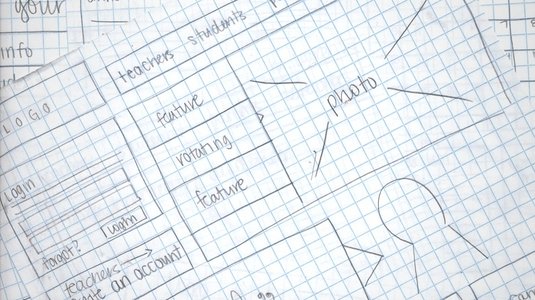 your
info
LOGO
teachers students
feature
rotating
feature
photo
Login
Login
forgot?
teachers
an account